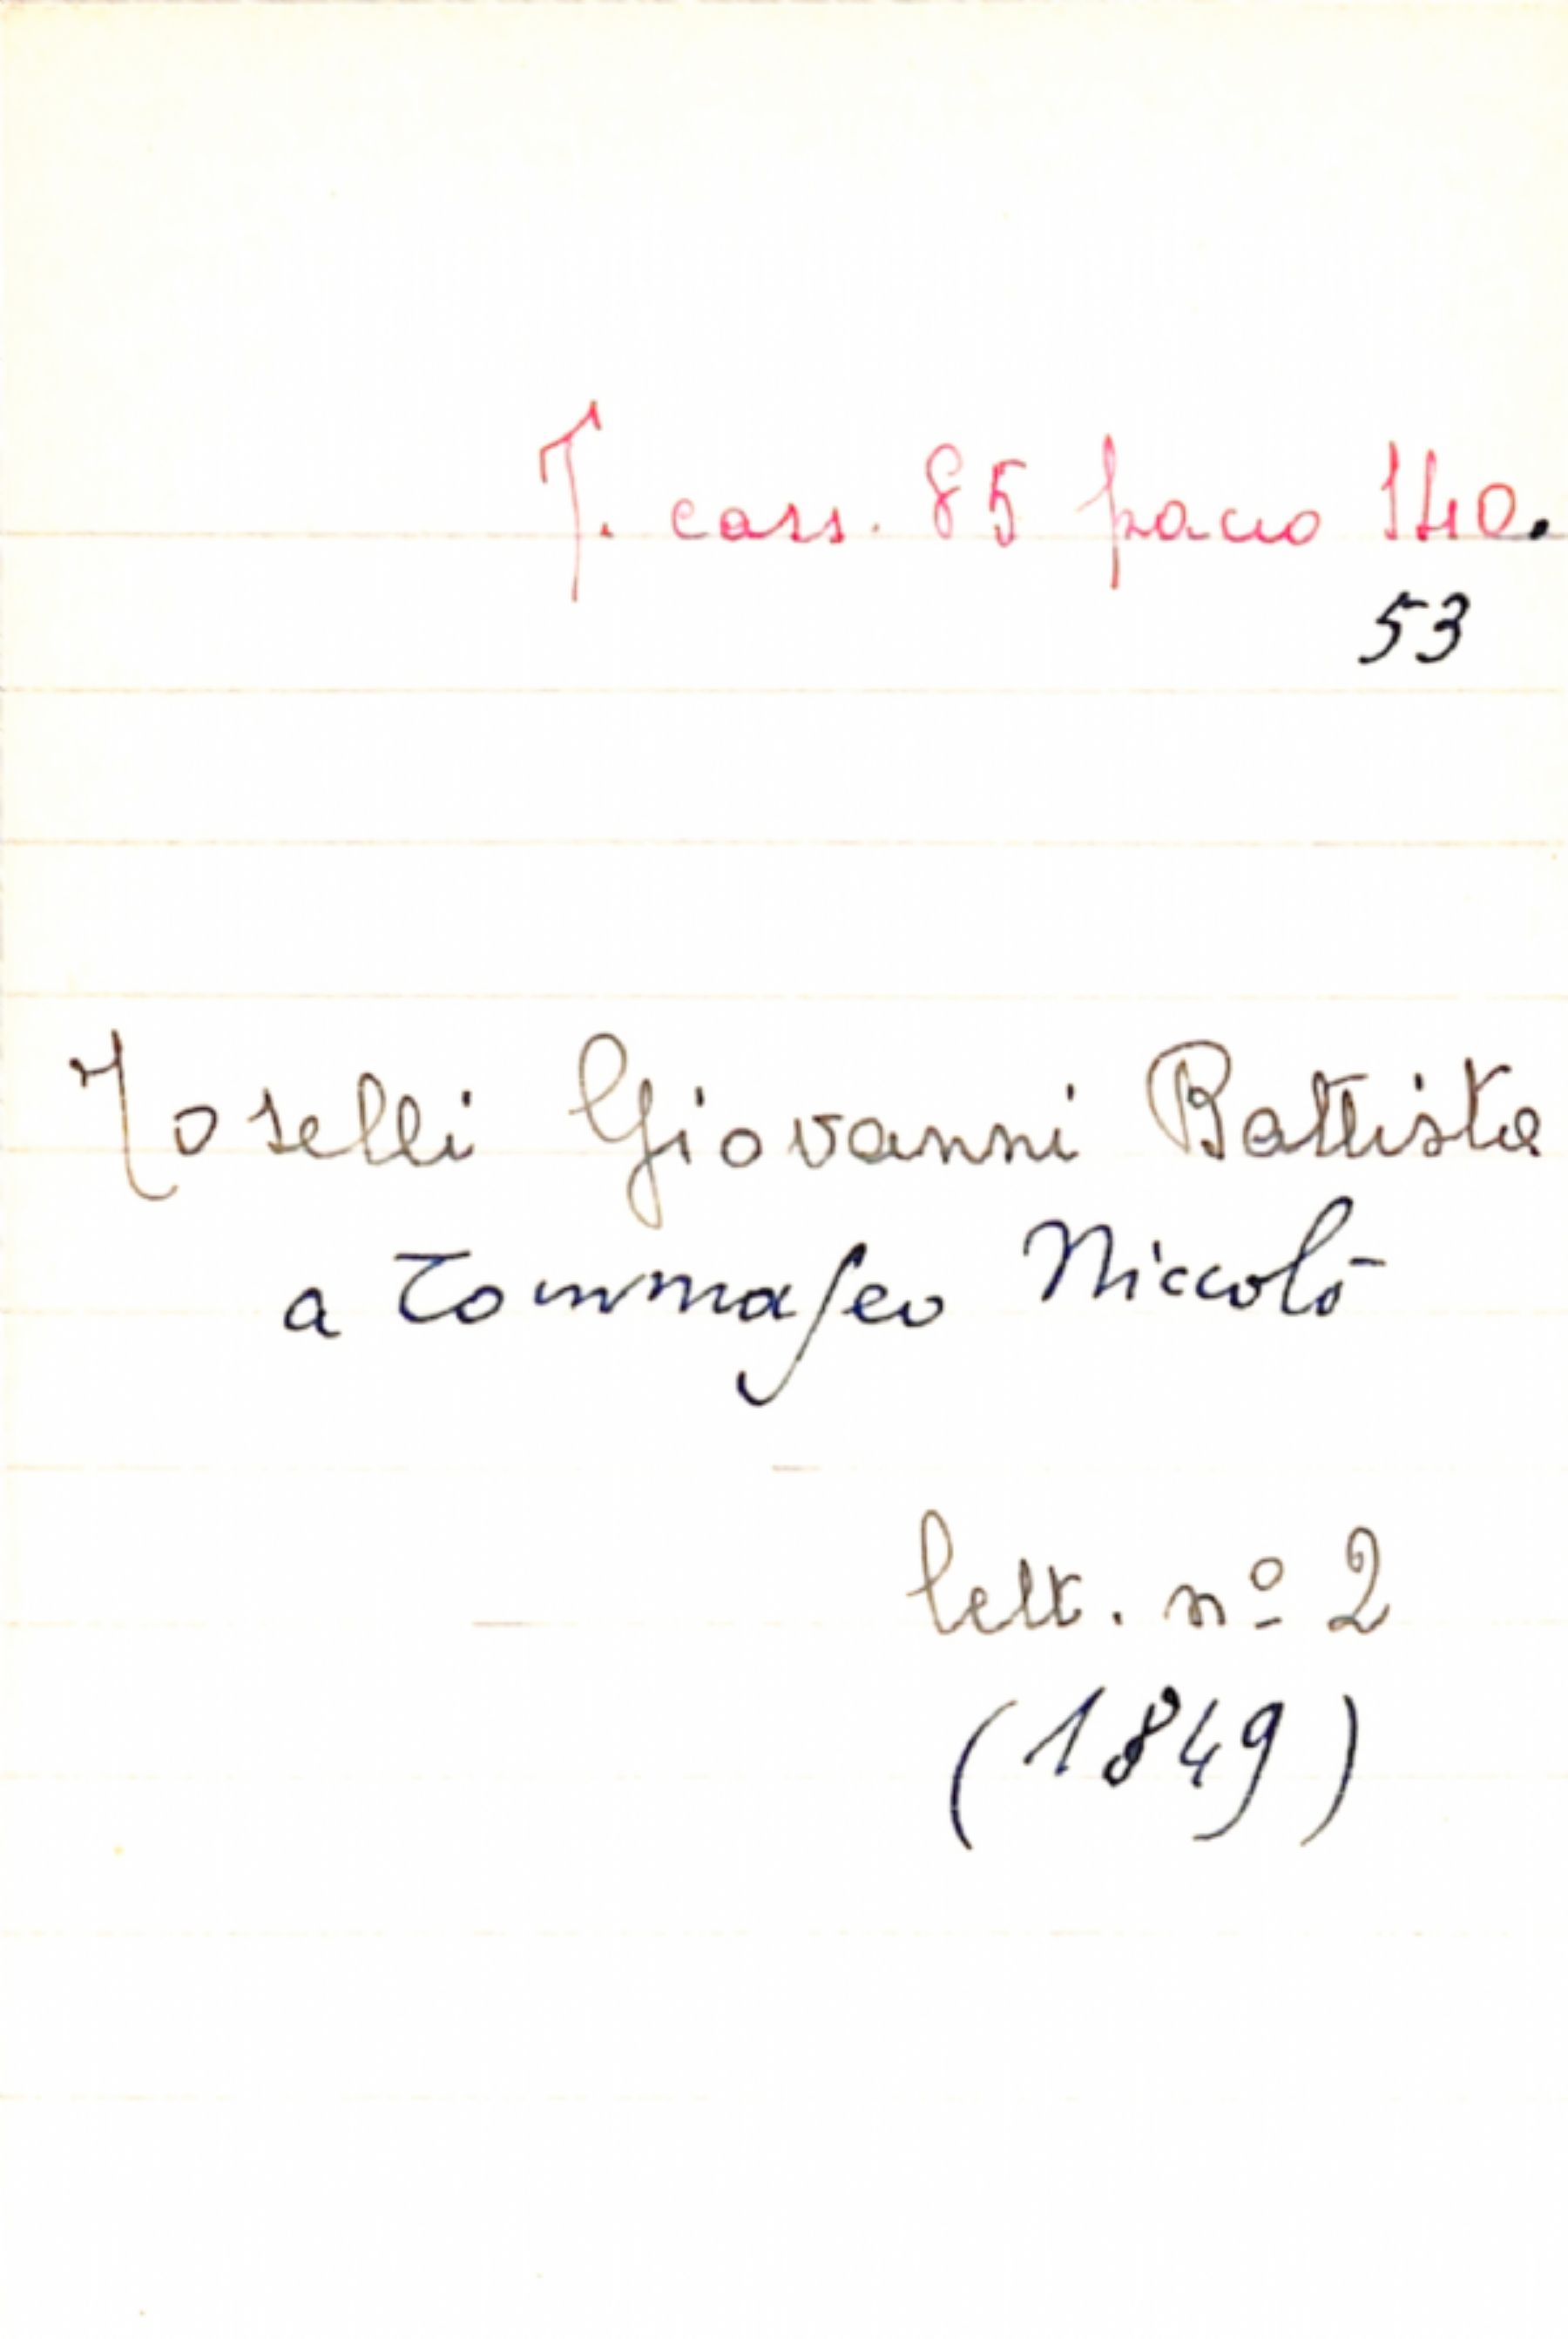 T. cass. 85 pacco 140.
53
Toselli Giovanni Battista
a Tommaseo Niccolò
lett. nº 2
(1849)